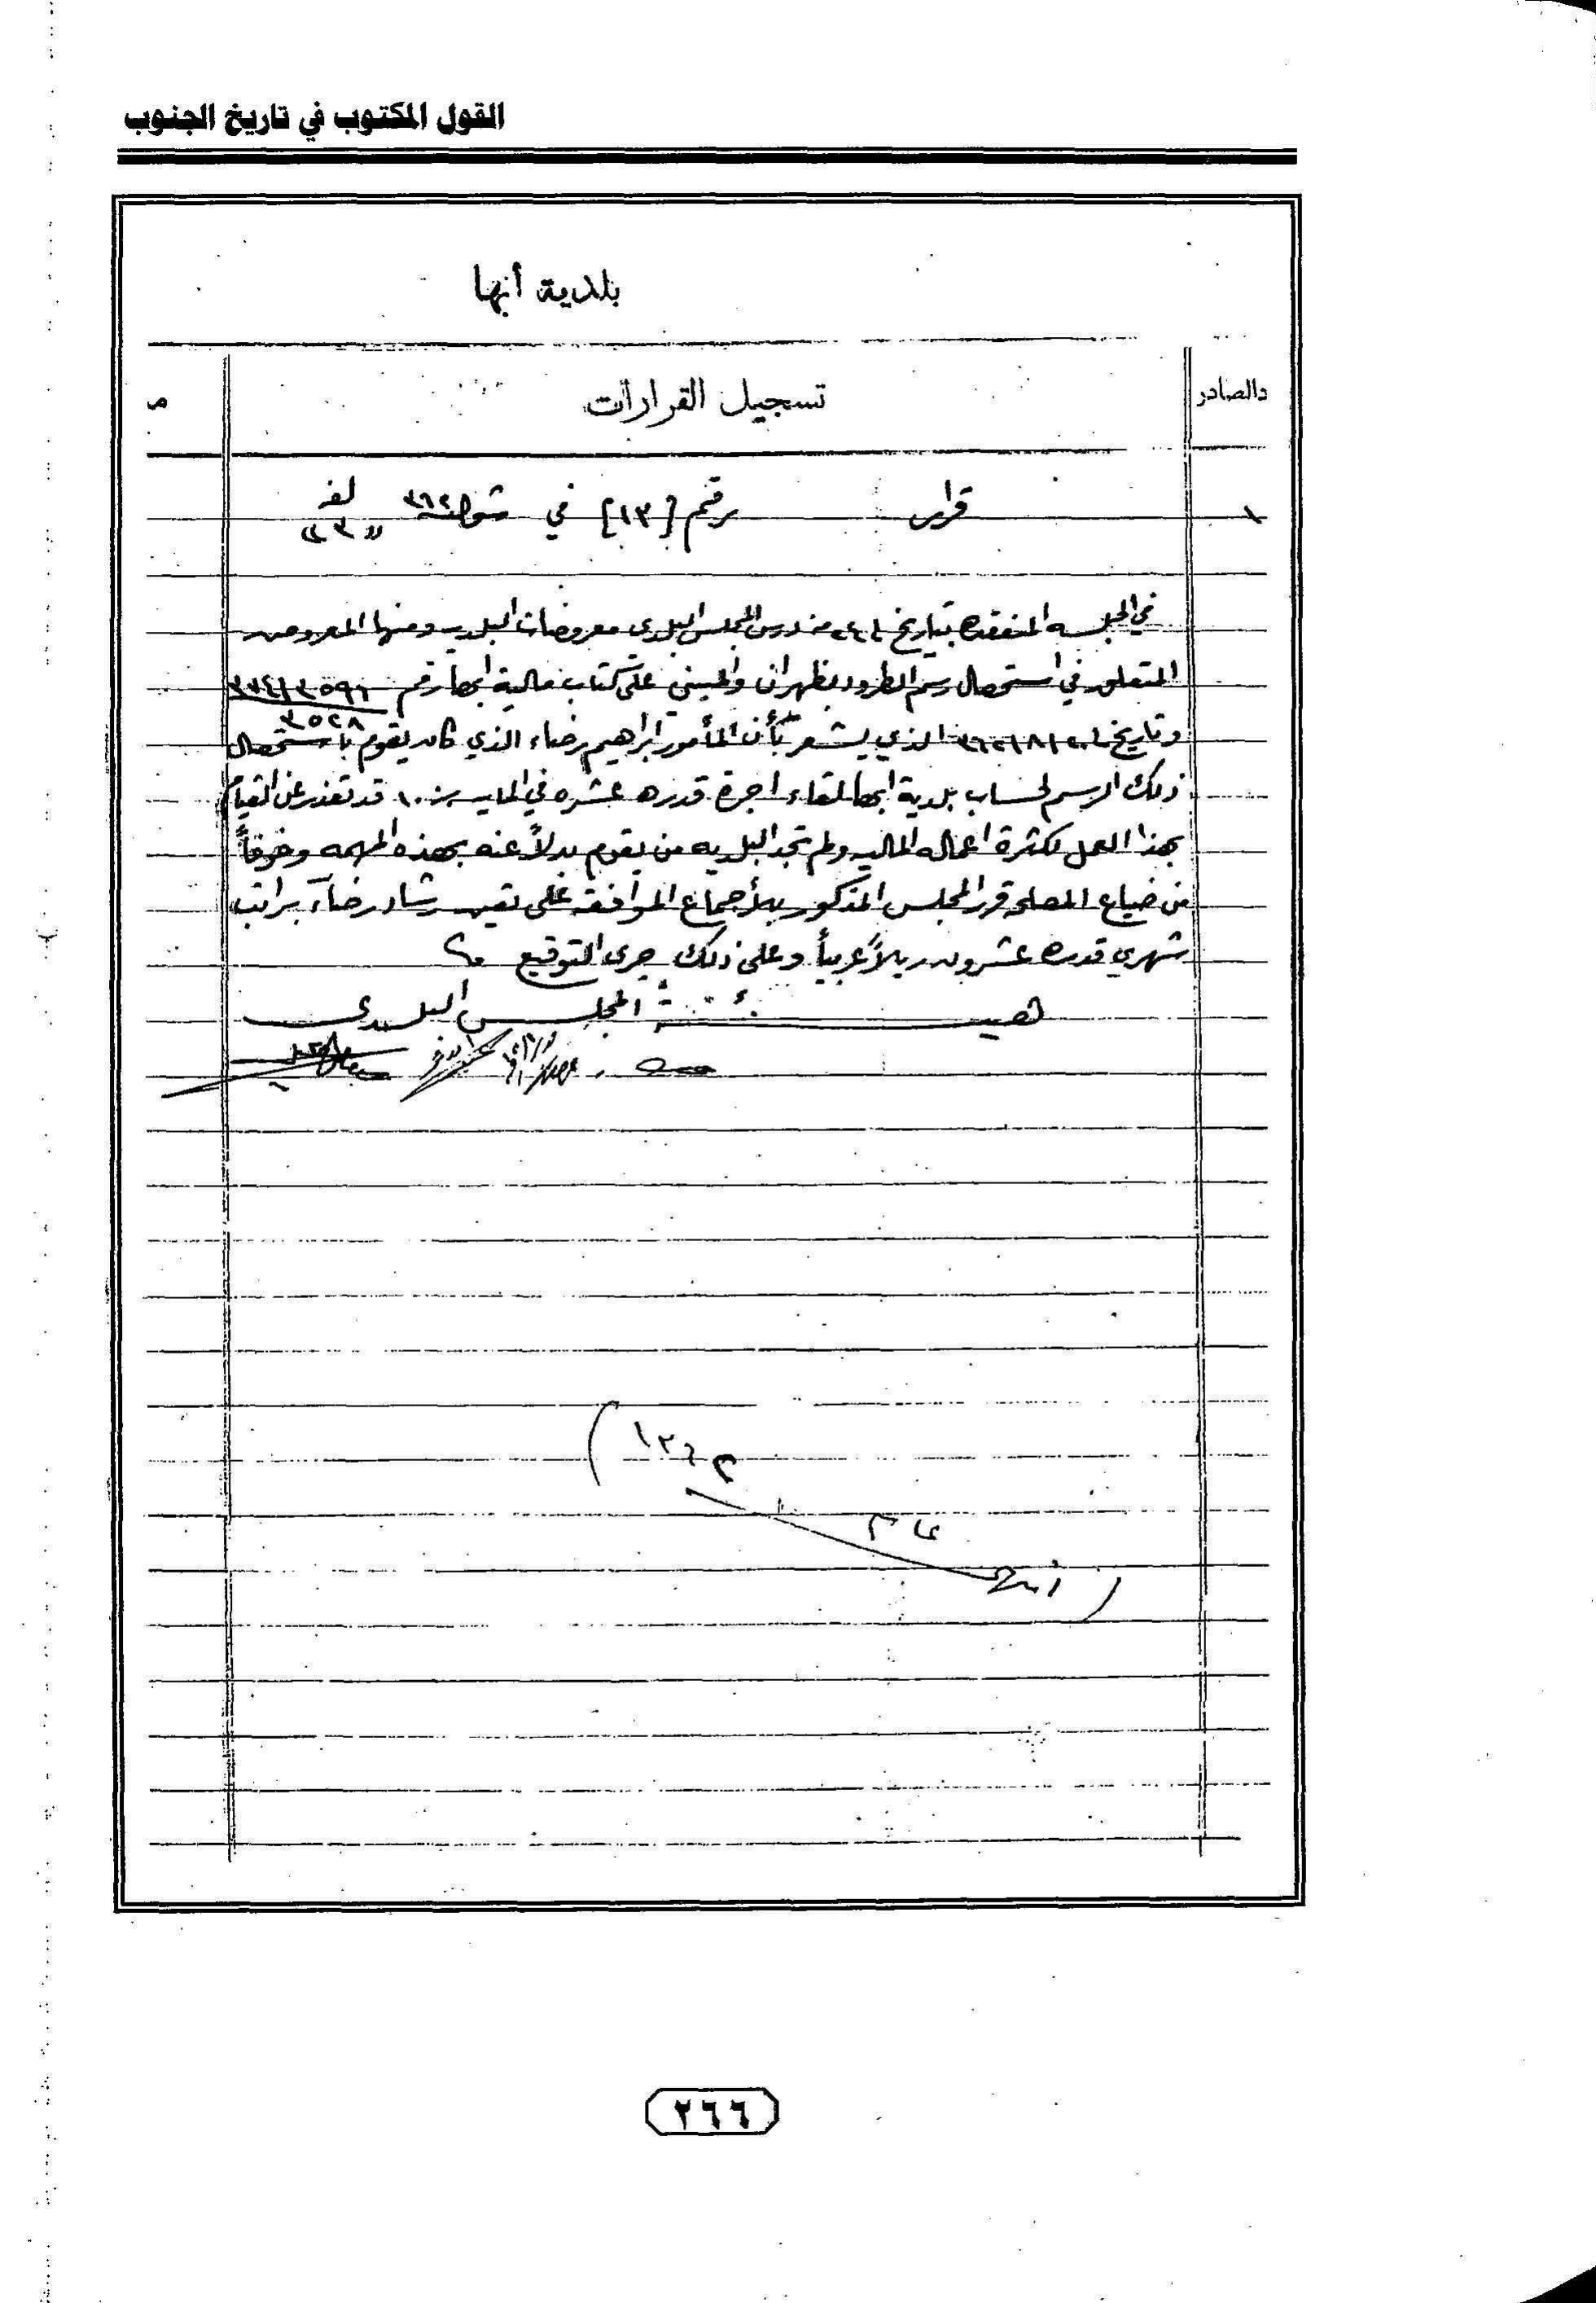 القول المكتوب في تاريخ الجنوب
بلدية أبها
دالصادر
تسجيل القرارات
١
قرار رقم [١٣] في لفه
«٣»
في الجلسه المنعقده بتاريخ درس المجلس البلدي معروضات البلديه ومنها المعروض
المتعلق في استحصال رسم الطرود بظهران والمبني على كتاب مالية ابها رقم
وتاريخ الذي يشعر بأن المأمور ابراهيم رضاء الذي كان يقوم بأستحصال
ذلك الرسم لحساب بلدية ابها لقاء اجرة قدره عشره في المايه ١٠ قد تعذر عن القيام
بهذا العمل لكثرة اعماله الماليه ولم تجد البلديه من يقوم بدلاً عنه بهذه المهمه وخوفاً
من ضياع المصلحه قرر المجلس المذكور بلأجماع الموافقه على تعين رشاد رضاء براتب
شهري قدره عشرون ريلاً عربياً وعلى ذلك جرى التوقيع
هيئة المجلس البلدي
عام
٢٦٦